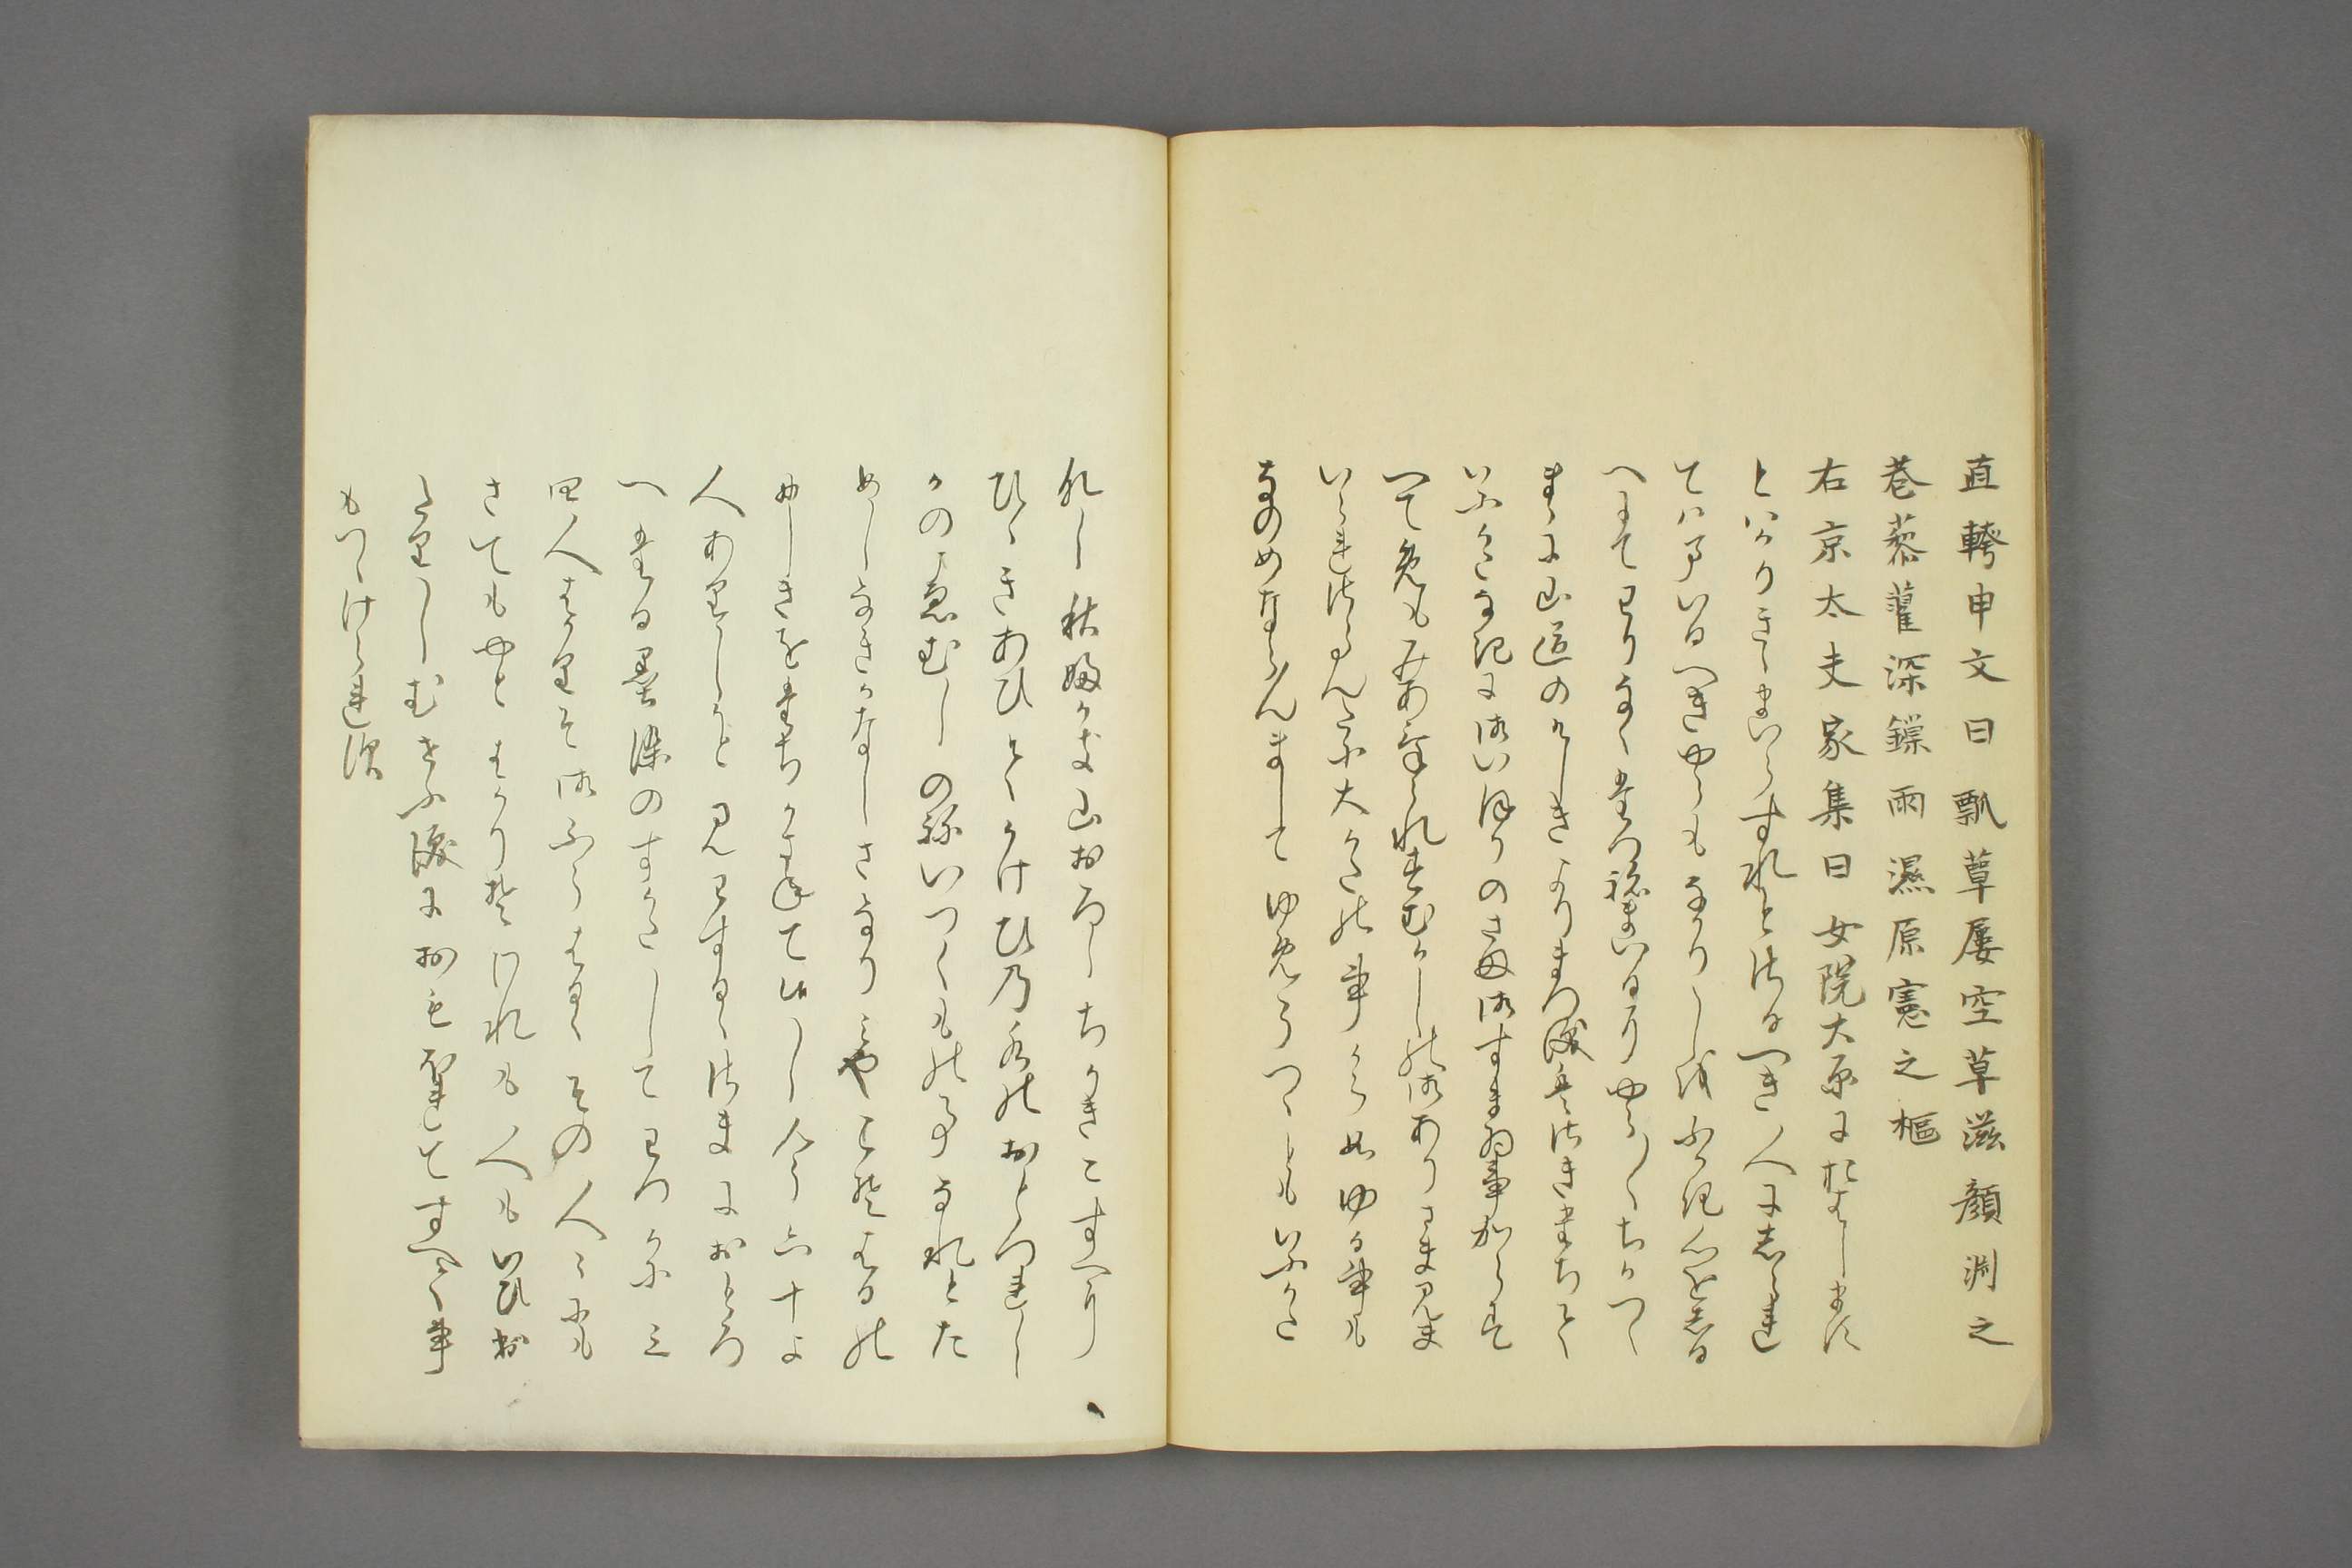 直幹申文曰瓢草屡空草滋顔淵之
巷藜藋深鏁雨濕原憲之樞
右京太夫家集曰女院大原におはします
とはかりきゝまいらすれとさるへき人にしられ
てはまいるへきやうもなかりしをふかき心をしる
へにてわりなくたつねまいるにやう〳〵ちかつく
まゝに山道のけしきよりまつ涙はさきたちて
いふかたなきに御いほりのさま御すまゐ事からす
へてめもみあてられすむかしの御ありさま見ま
いらせさらんたに大かたの事からいかゝ事も
なのめならんましてゆめうつゝともいふかた
なし秋ふかき山おろしちかきこすへに
ひゝきあひてかけひの水のおとつれし
かの声むしのねいつくものことなれとた
めしなきかなしさなりみやこははるの
にしきをたちかさねて候し人々六十よ
人ありしかと見わするゝさまにおとろ
へたる墨染のすかたしてわつかに三
四人はかりそ御ふらはるゝその人々にも
さてもやとはかりそわれも人もいひ出
たりしむせふ涙におもほれてすへて事
もつゝけられす